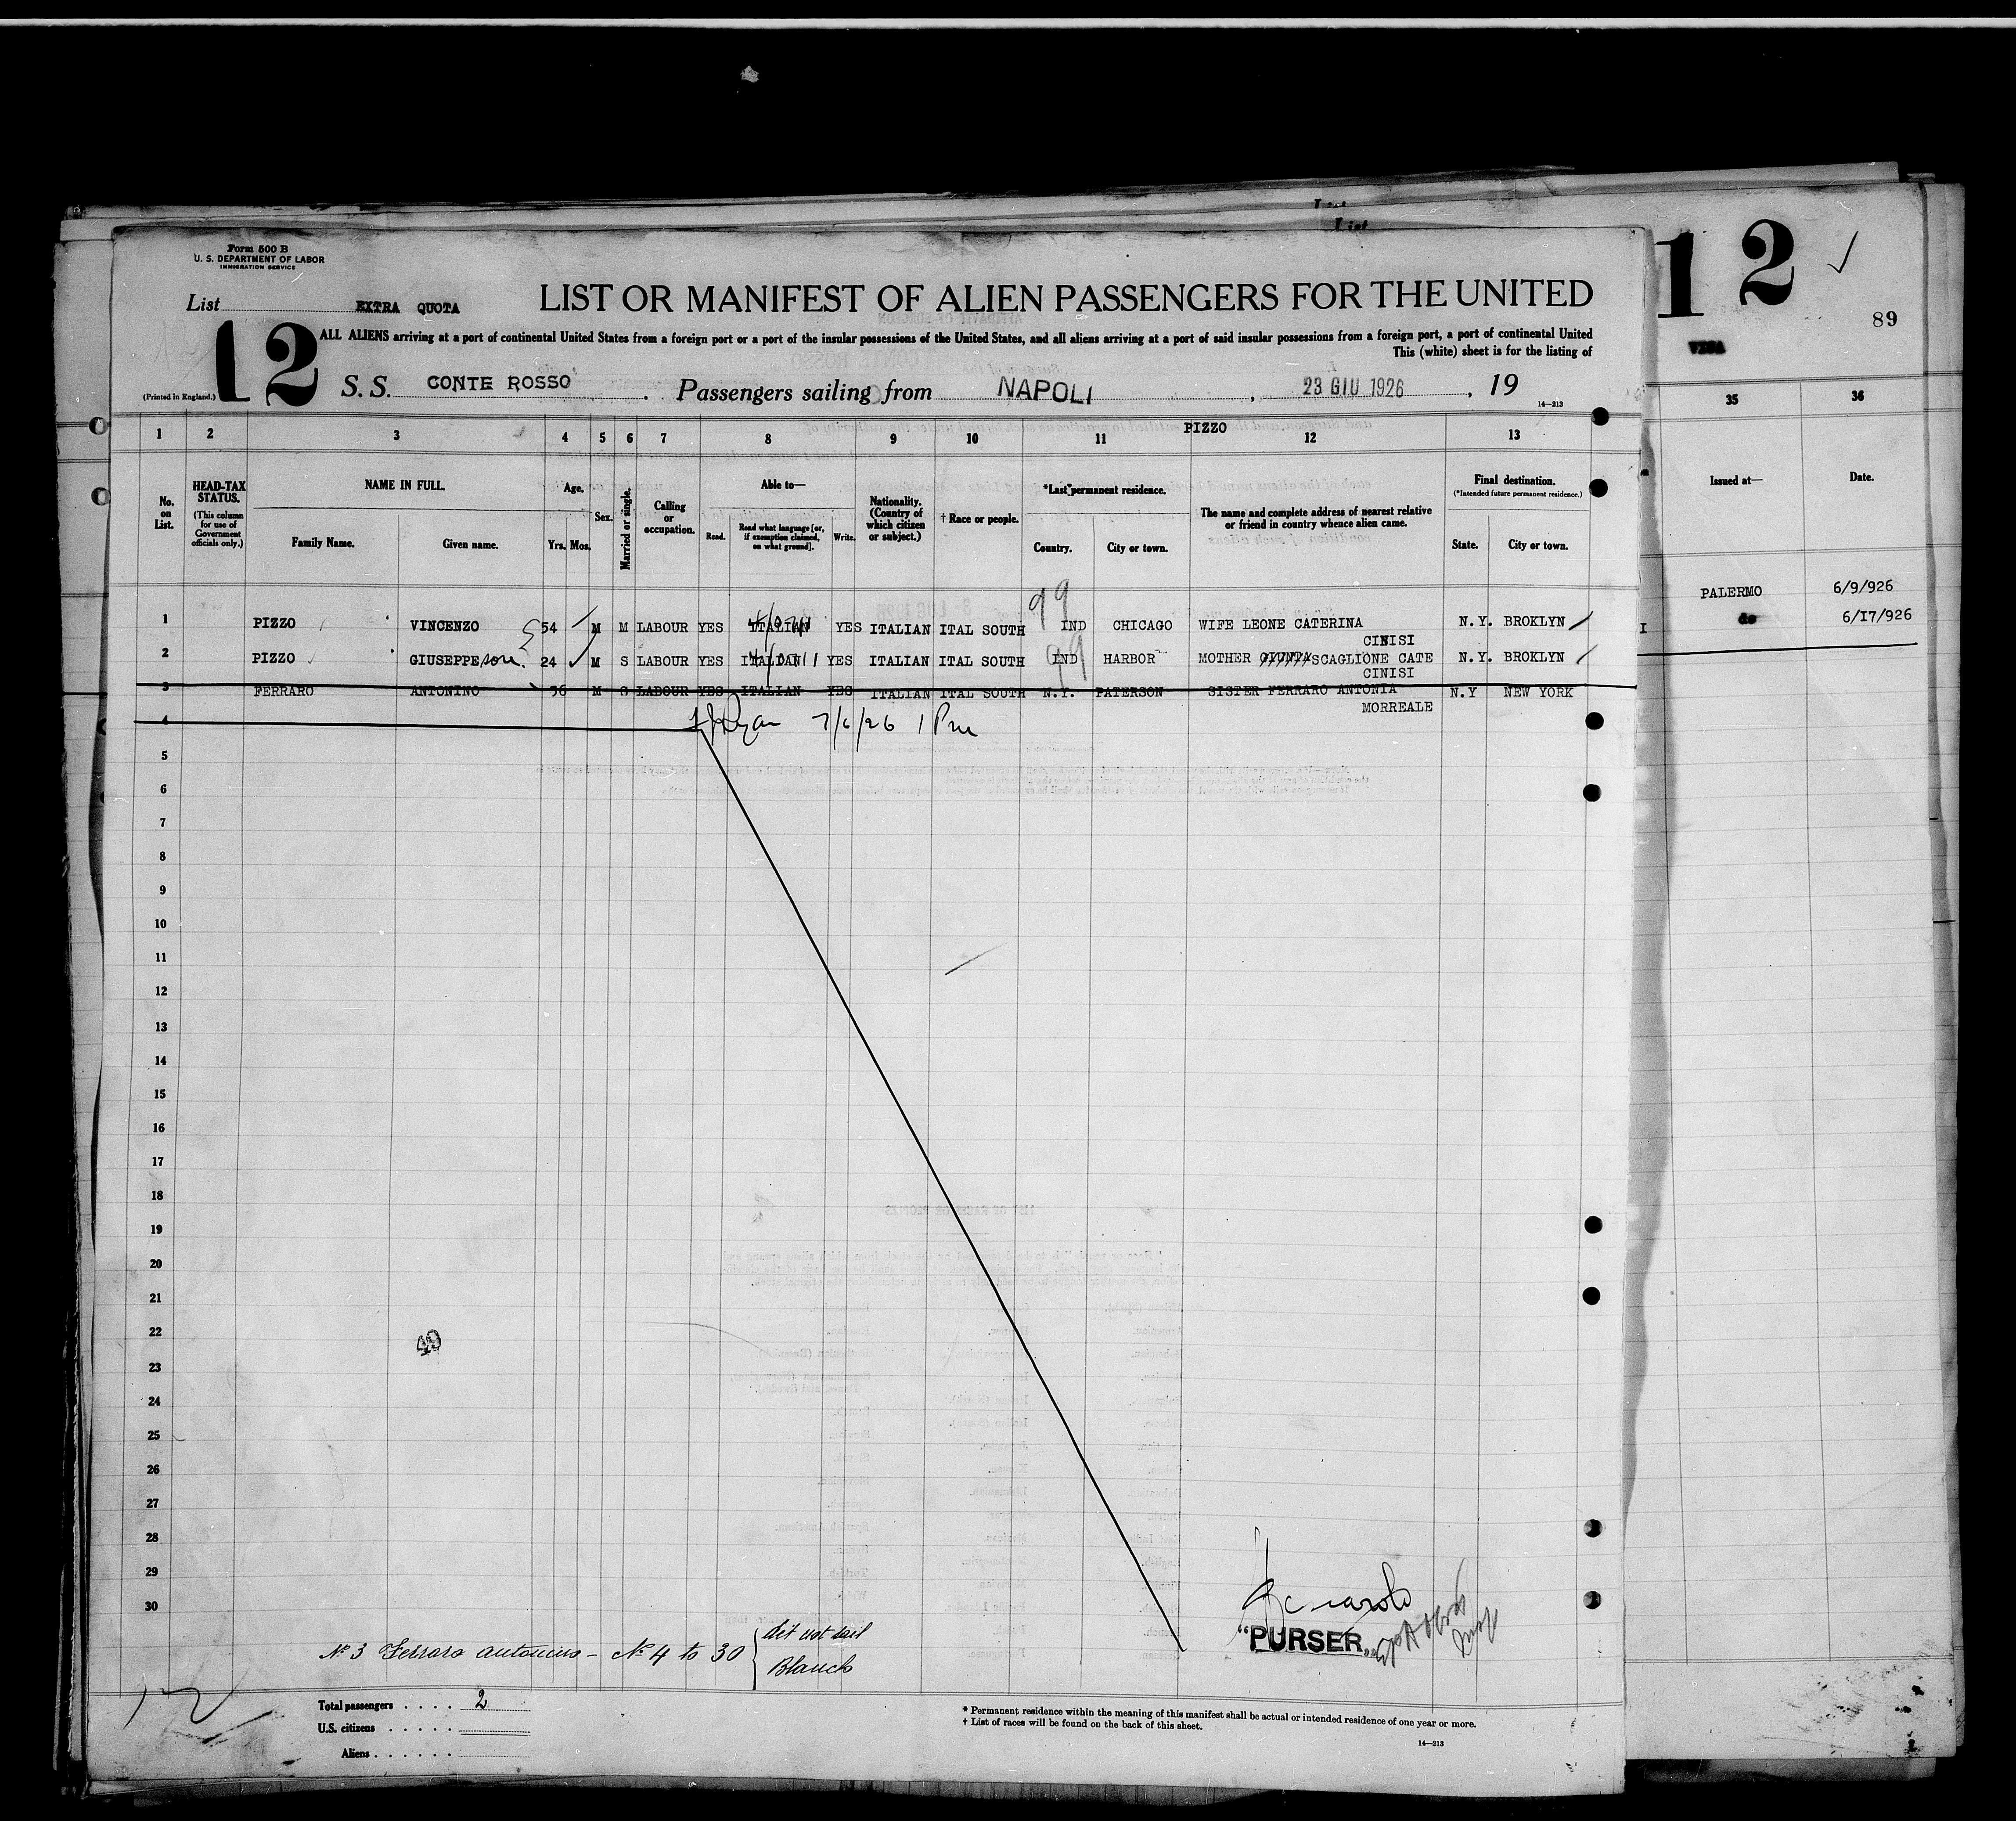 Form 500 B
U. S. DEPARTMENT OF LABOR
IMMIGRATION SERVICE
List EXTRA QUOTA
LIST OR MANIFEST OF ALIEN PASSENGERS FOR THE UNITED
12
ALL ALIENS arriving at a port of continental United States from a foreign port or a port of the insular possessions of the United States, and all aliens arriving at a port of said insular possessions from a foreign port, a port of continental United
This (white) sheet is for the listing of
(Printed in England.)
S. S. CONTE ROSSO . Passengers sailing from NAPOLI , 23 GIU 1926 , 19
14—213
1 2 3 4 5 6 7 8 9 10 11 PIZZO 12 13
No. on List.
HEAD-TAX STATUS.
(This column for use of Government officials only.)
NAME IN FULL.
Family Name. Given name.
Age.
Yrs. Mos.
Sex.
Married or single.
Calling or occupation.
Able to—
Read. Read what language [or, if exemption claimed, on what ground]. Write.
Nationality. (Country of which citizen or subject.)
† Race or people.
*Last permanent residence.
Country. City or town.
The name and complete address of nearest relative or friend in country whence alien came.
Final destination.
(*Intended future permanent residence.)
State. City or town.
1 PIZZO VINCENZO 54 M M LABOUR YES ITALIAN YES ITALIAN ITAL SOUTH 99 IND CHICAGO WIFE LEONE CATERINA N.Y. BROKLYN
CINISI
2 PIZZO GIUSEPPE son. 24 M S LABOUR YES ITALIAN YES ITALIAN ITAL SOUTH 99 IND HARBOR MOTHER GIUNTA SCAGLIONE CATE N.Y. BROKLYN
CINISI
3 FERRARO ANTONINO 36 M S LABOUR YES ITALIAN YES ITALIAN ITAL SOUTH N.Y. PATERSON SISTER FERRARO ANTONIA N.Y NEW YORK
MORREALE
4 Ryan 7/6/26 1 Pm
5
6
7
8
9
10
11
12
13
14
15
16
17
18
19
20
21
22
23
24
25
26
27
28
29
30
49
"PURSER
Nº 3 Ferraro Antonino — Nº 4 to 30
did not sail
Blanch
12
Total passengers . . . . 2
U.S. citizens . . . . .
Aliens . . . . . .
* Permanent residence within the meaning of this manifest shall be actual or intended residence of one year or more.
† List of races will be found on the back of this sheet.
14—213
List
List
12
89
VISA
35 36
Issued at— Date.
PALERMO 6/9/926
do 6/17/926